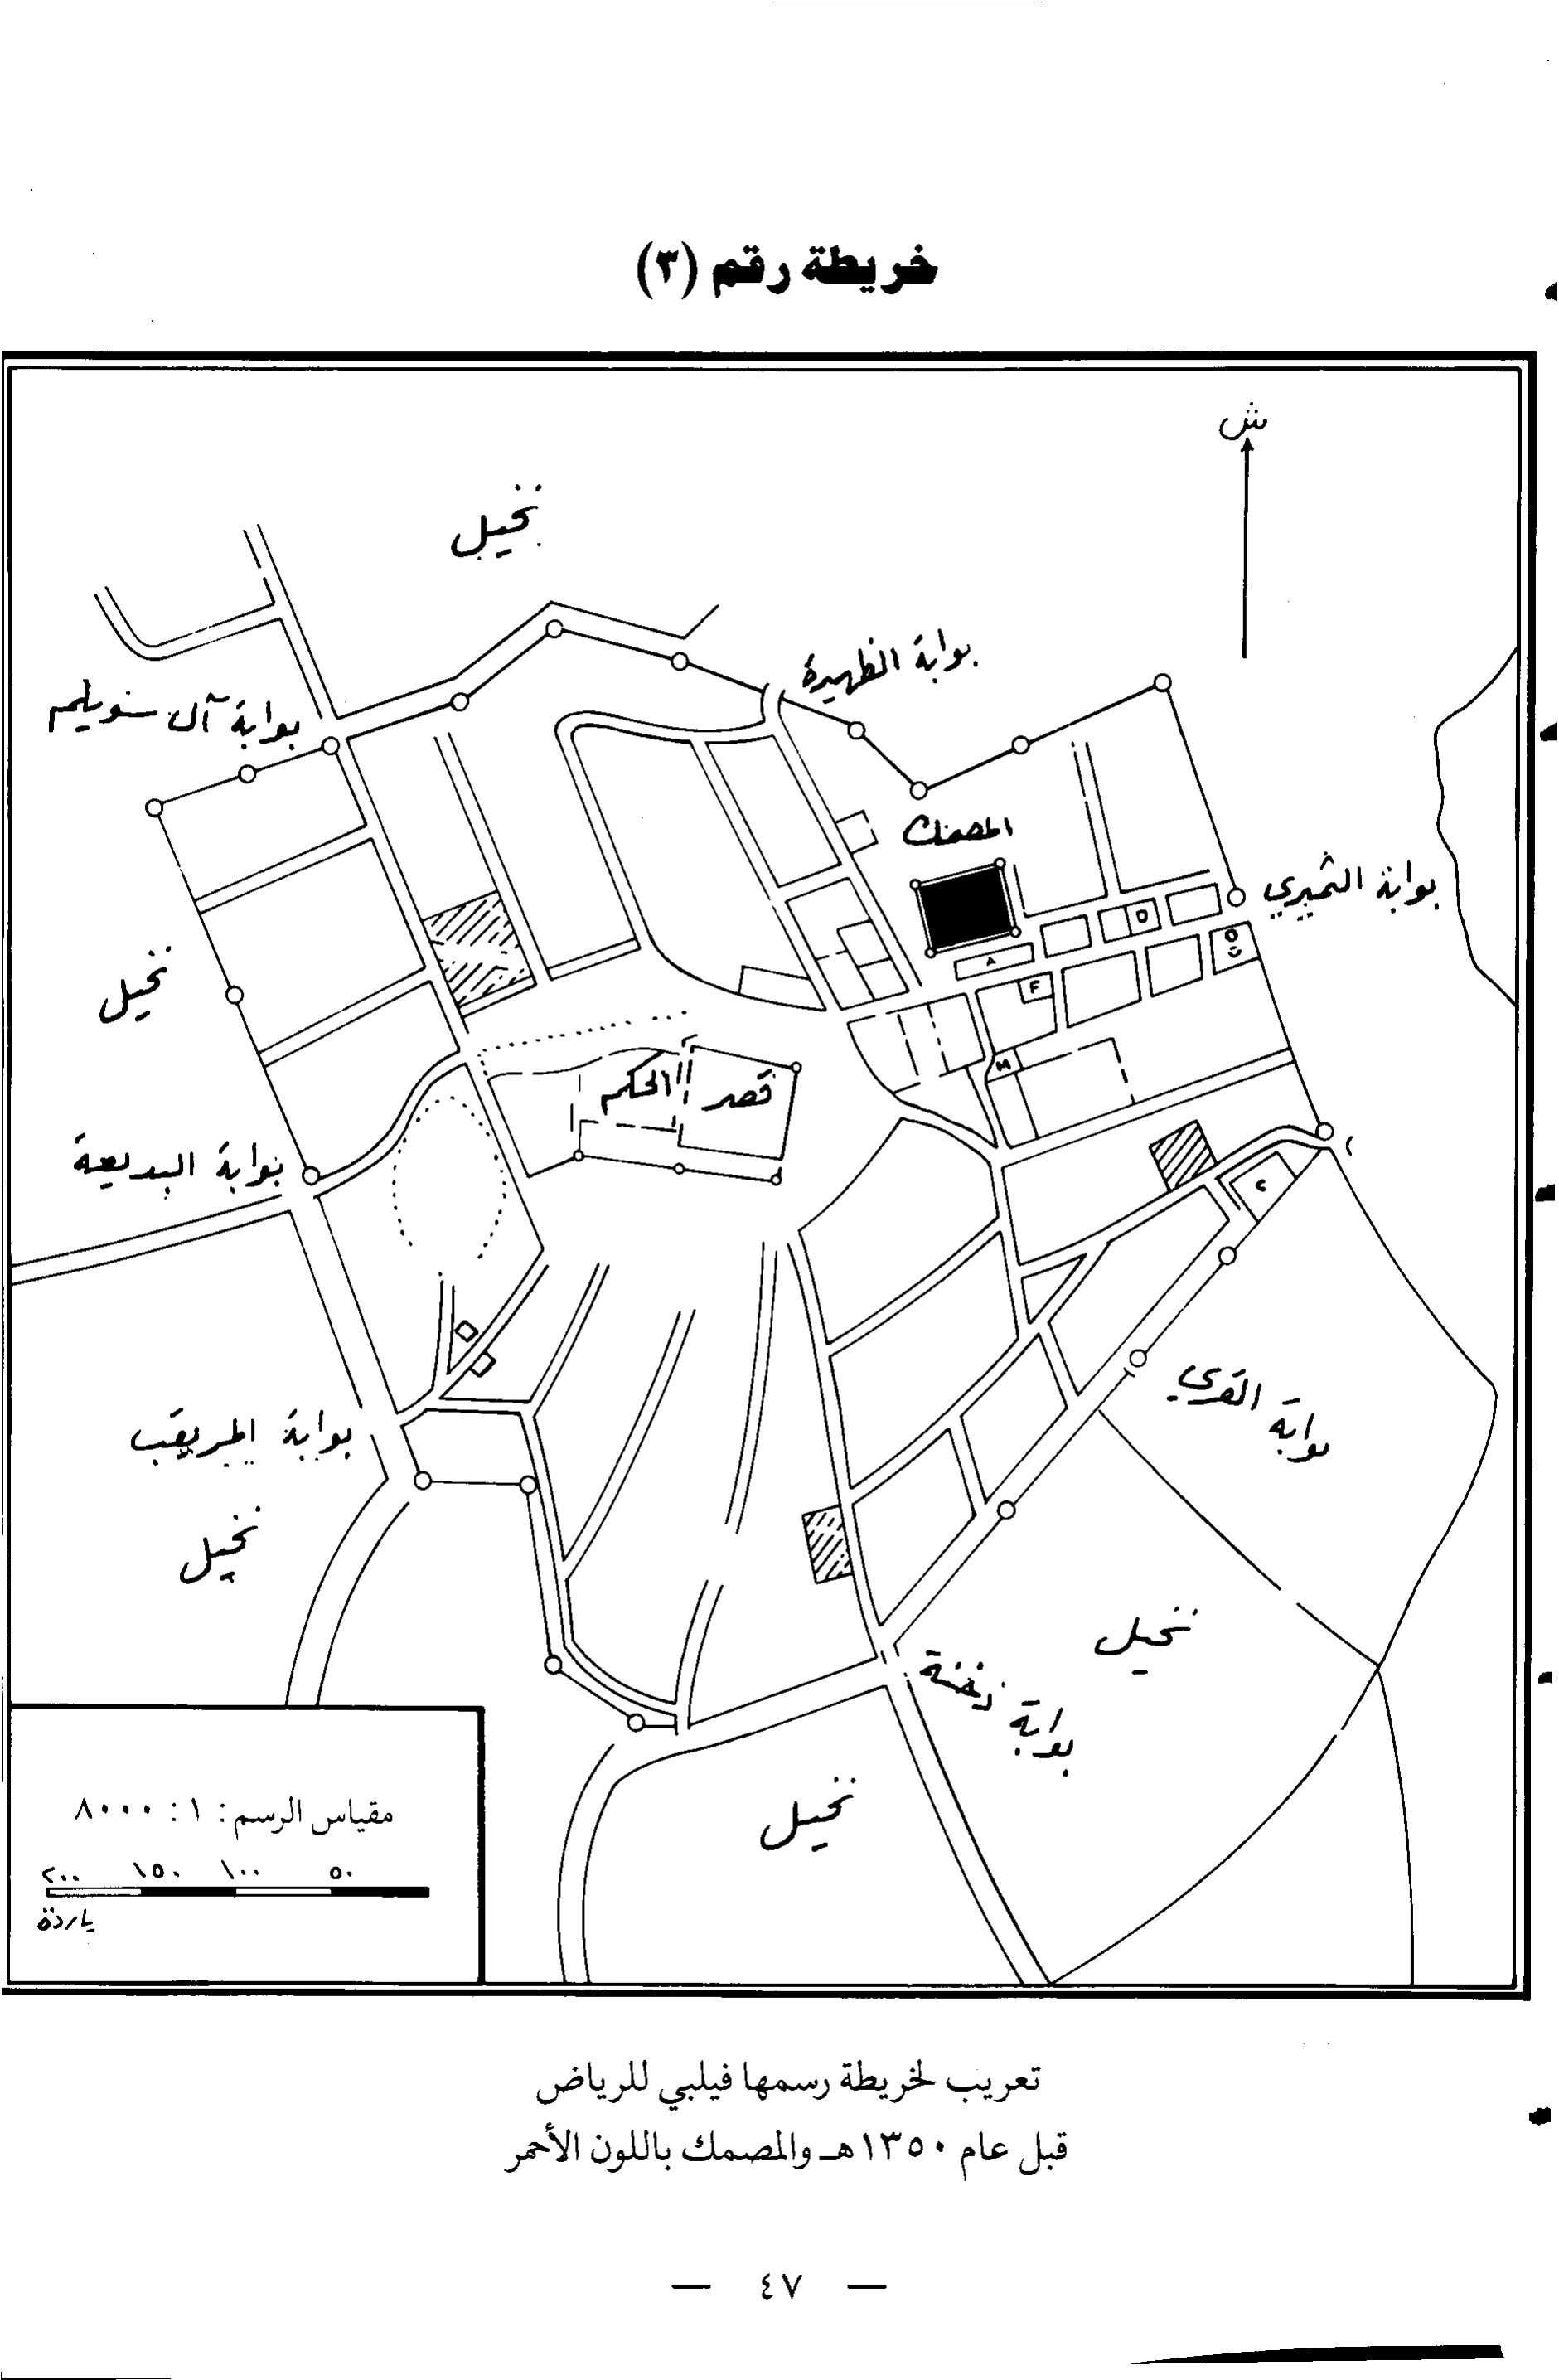 خريطة رقم (٣)
ش
نخيل
بوابة الظهيرة
بوابة آل سويلم
المصمك
بوابة الثميري
D
O
A
F
نخيل
M
قصر الحكم
بوابة البديعة
C
بوابة القري
بوابة المريقب
نخيل
نخيل
بوابة دخنة
نخيل
مقياس الرسم: ١ : ٨٠٠٠
٢٠٠ ١٥٠ ١٠٠ ٥٠
ياردة
تعريب لخريطة رسمها فيلبي للرياض
قبل عام ١٣٥٠هـ والمصمك باللون الأحمر
— ٤٧ —